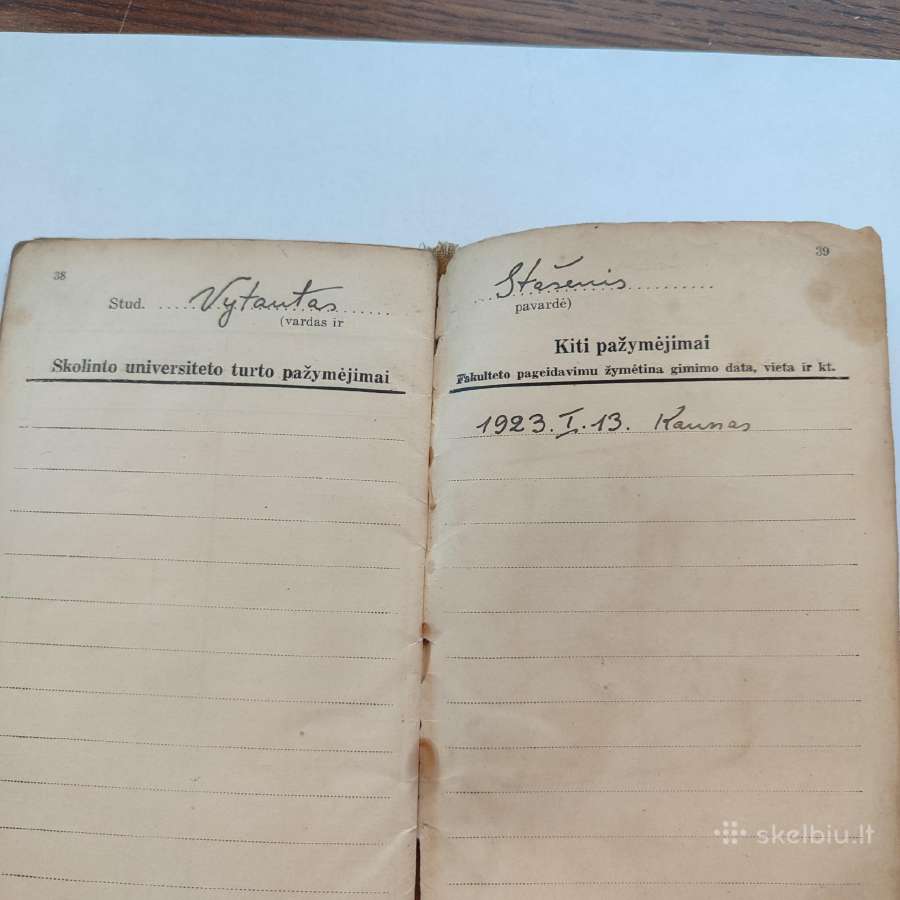 38
Stud. .... Vytautas
(vardas ir
Skolinto universiteto turto pažymėjimai
39
Stašenis
pavardė)
Kiti pažymėjimai
Fakulteto pageidavimu žymėtina gimimo data, vieta ir kt.
1923. I. 13. Kaunas
skelbiu.lt